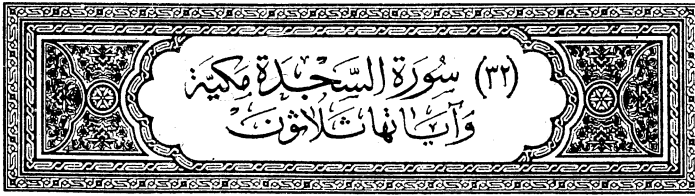 (٣٢) سُورَة السَّجْدَة مَكيَّة
وَآيَاتهَا ثَلَاثُونَ